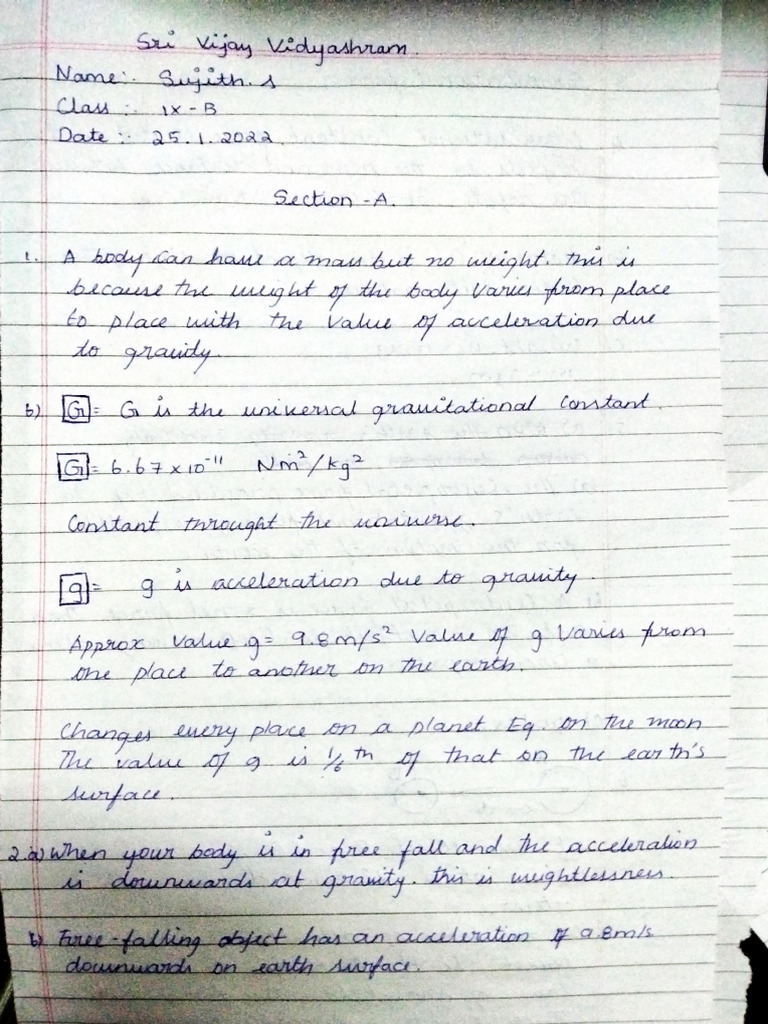 Sri Vijay Vidyashram.
Name:- Sujith.s
Class :- IX - B
Date :- 25.1.2022.
Section -A.
1. A body can have a mass but no weight. This is
because the weight of the body varies from place
to place with the value of acceleration due
to gravity.
b) G = G is the universal gravitational constant.
G = 6.67 x 10⁻¹¹ Nm²/kg²
Constant throught the universe.
g = g is acceleration due to gravity.
Approx value g = 9.8m/s² value of g varies from
one place to another on the earth.
Changes every place on a planet Eg. on the moon
The value of g is 1/6 th of that on the earth's
surface.
2.a) When your body is in free fall and the acceleration
is downwards at gravity. this is weightlessness.
b) Free-falling object has an acceleration of 9.8m/s
downwards on earth surface.